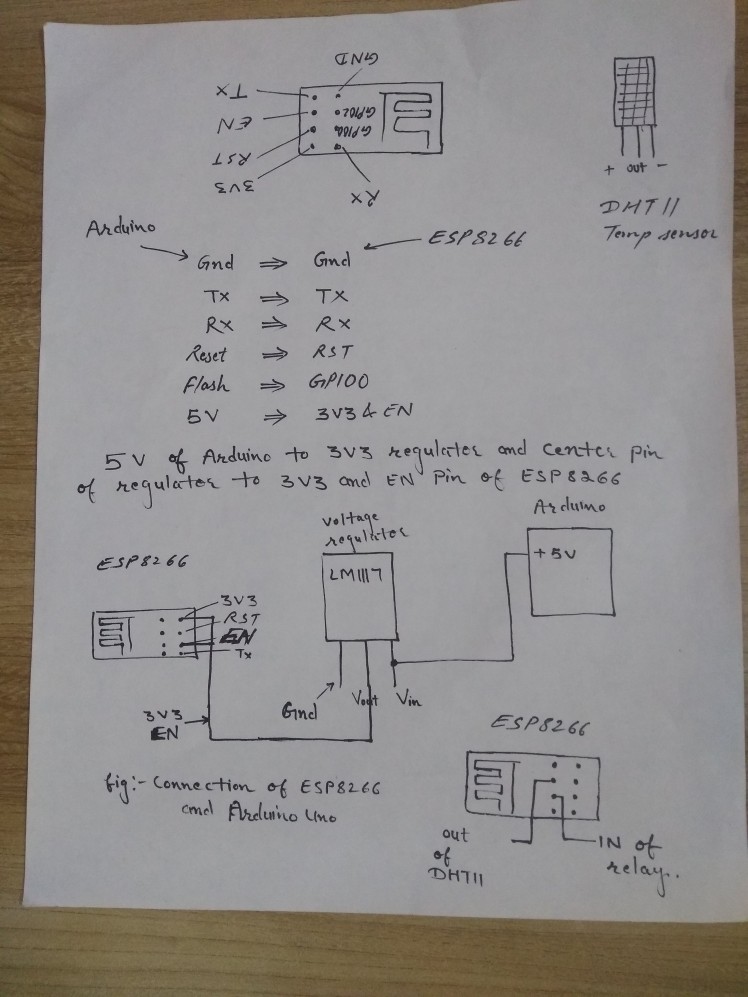 GND
TX
EN
GPIO2
RST
GPIO0
3V3
RX
+ out -
DHT11
Temp sensor
Arduino
ESP8266
Gnd ⇒ Gnd
Tx ⇒ TX
Rx ⇒ RX
Reset ⇒ RST
Flash ⇒ GPIO0
5V ⇒ 3V3 & EN
5V of Arduino to 3V3 regulator and center pin
of regulator to 3V3 and EN Pin of ESP8266
voltage
regulator
Arduino
ESP8266
LM1117
+5V
3V3
RST
EN
Tx
Gnd
Vout
Vin
3V3
EN
ESP8266
fig:- Connection of ESP8266
and Arduino Uno
out
of
DHT11
IN of
relay..